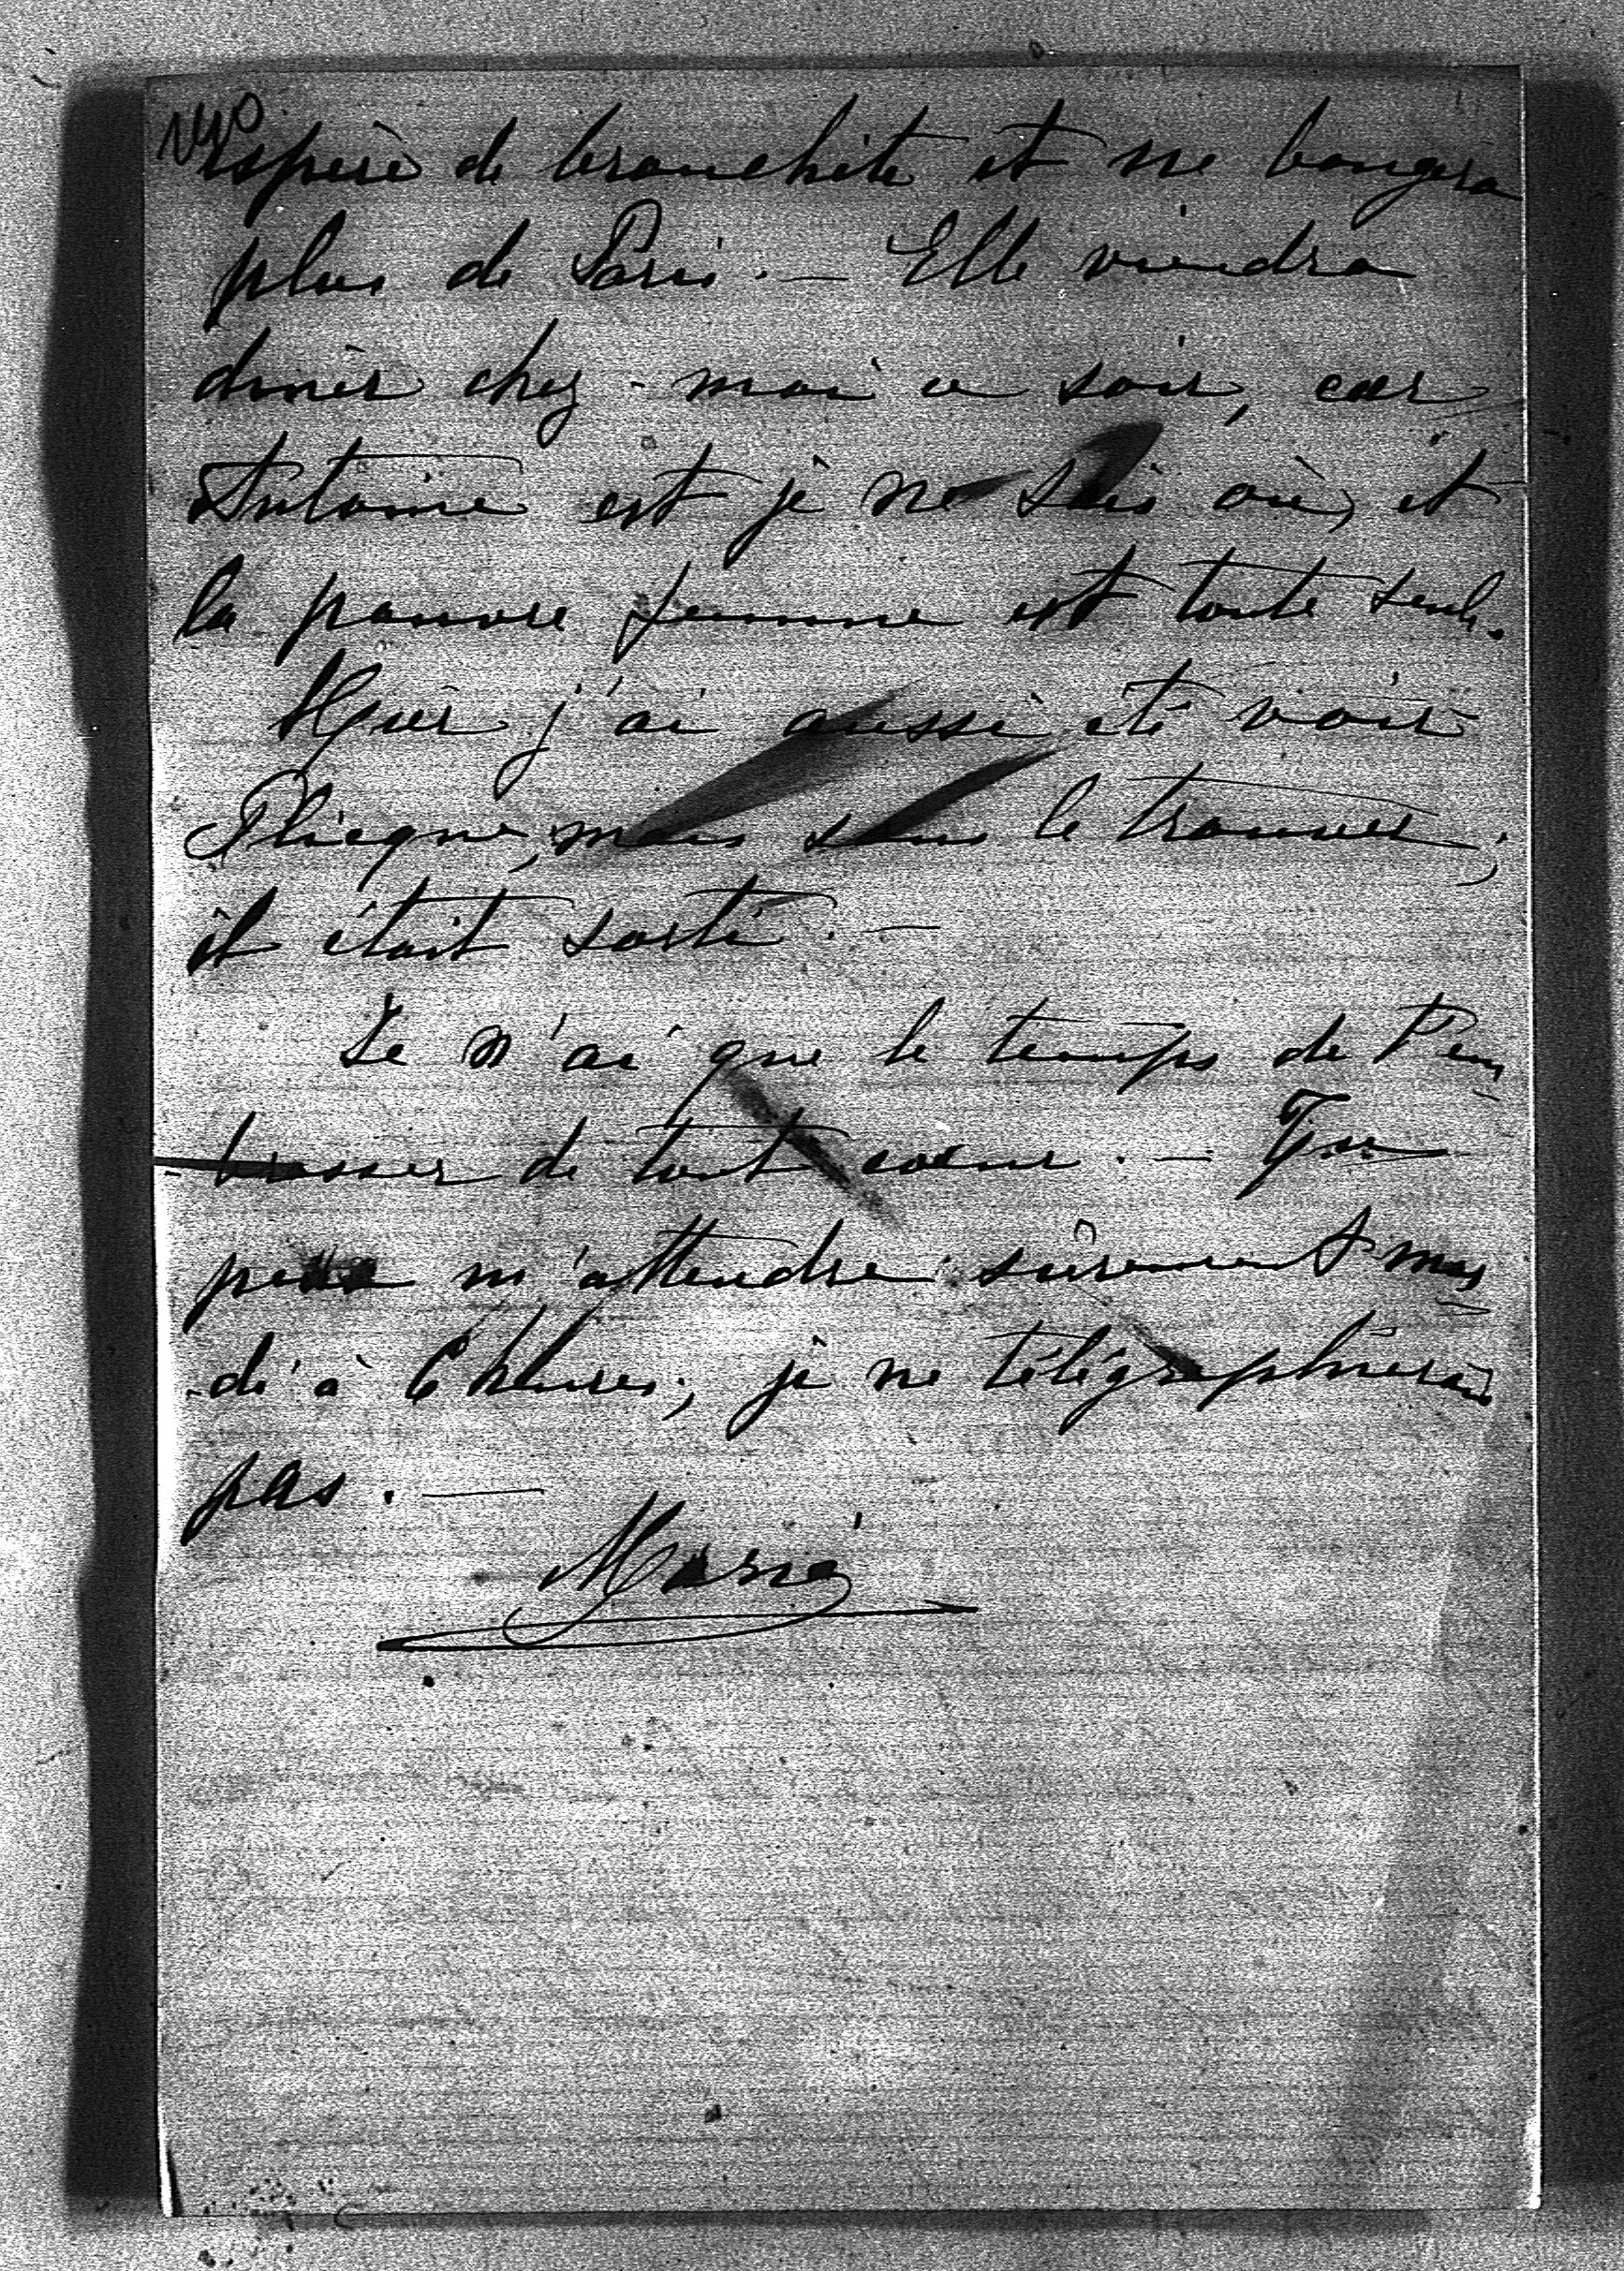 espèce de bronchite et ne bougera
plus de Paris. — Elle viendra
diner chez-moi ce soir, car
Antoine est je ne sais où, et
la pauvre femme est toute seule.
Hier j'ai aussi été voir
Plicque, mais sans le trouver;
il était sorti. —
Je n'ai que le temps de t'em
-brasser de tout coeur. — Tu
peux m'attendre sûrement mar
-di à 6 heures; je ne télégraphierai
pas. —
Marie